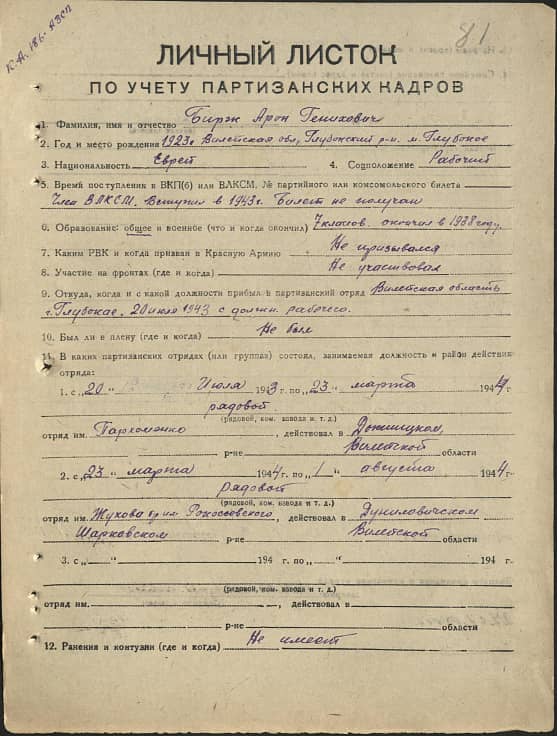 81
ЛИЧНЫЙ ЛИСТОК
ПО УЧЕТУ ПАРТИЗАНСКИХ КАДРОВ
1. Фамилия, имя и отчество Бирж Арон Генихович
2. Год и место рождения 1923г Вилейская обл, Глубокский р-н. м. Глубокое
3. Национальность Еврей 4. Соцположение Рабочий
5. Время поступления в ВКП(б) или ВЛКСМ, № партийного или комсомольского билета
Член ВЛКСМ. Вступил в 1943г. Билет не получал
6. Образование: общее и военное (что и когда окончил) 7 класов. окончил в 1938 году.
7. Каким РВК и когда призван в Красную Армию Не призывался
8. Участие на фронтах (где и когда) Не участвовал
9. Откуда, когда и с какой должности прибыл в партизанский отряд Вилейская область
г. Глубокае, 20 июля 1943 с должн. рабочего.
10. Был ли в плену (где и когда) Не был
11. В каких партизанских отрядах (или группах) состоял, занимаемая должность и район действия
отряда:
1. с „20“ Июля 1943 г. по „23“ марта 1944 г.
рядовой
(рядовой, ком. взвода и т. д.)
отряд им. Пархоменко, действовал в Докшицком,
р-не Вилейской области
2. с „23“ марта 1944 г. по „1“ августа 1944 г.
рядовой
(рядовой, ком. взвода и т. д.)
отряд им. Жукова бр. им. Рокоссовского, действовал в Дуниловичском
Шарковском р-не Вилейской области
3. с „ “ 194 г. по „ “ 194 г.
(рядовой, ком. взвода и т. д.)
отряд им. , действовал в
р-не области
12. Ранения и контузии (где и когда) Не имеет